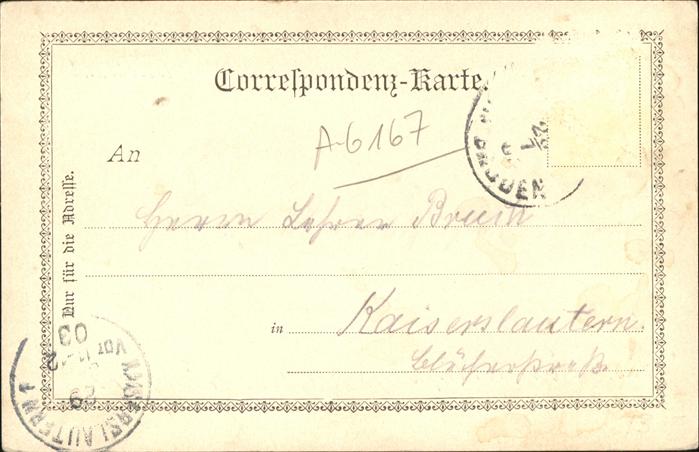 Correspondenz-Karte.
A-6167
An
Herrn Lehrer Bruch
in Kaiserslautern.
Blücherstraße
Nur für die Adresse.
KAISERSLAUTERN 1
29
VOR 11-12
03